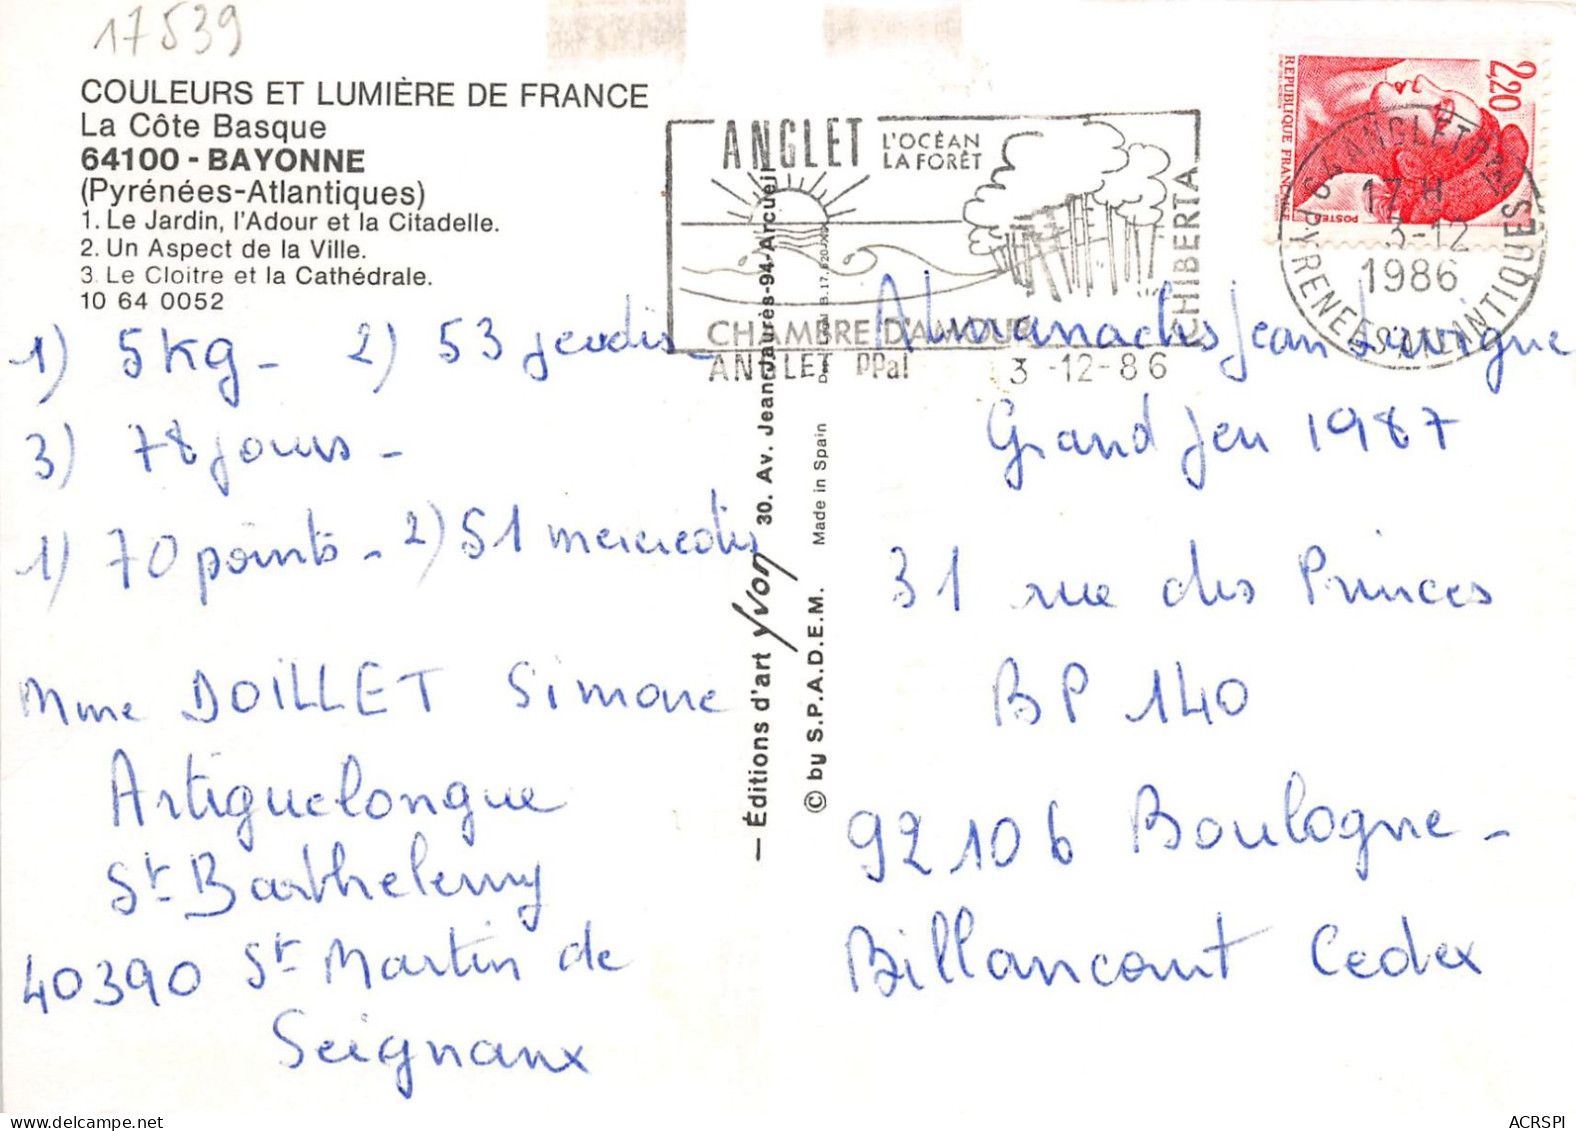 17539
COULEURS ET LUMIÈRE DE FRANCE
La Côte Basque
64100 - BAYONNE
(Pyrénées-Atlantiques)
1. Le Jardin, l'Adour et la Citadelle.
2. Un Aspect de la Ville.
3. Le Cloitre et la Cathédrale.
10 64 0052
1) 5kg - 2) 53 jeudis -
3) 78 jours -
1) 70 points - 2) 51 mercredis
Mme DOILLET Simone
Artiguelongue
St Barthelemy
40390 St Martin de
Seignanx
— Éditions d'art Yvon 30. Av. Jean-Jaurès-94-Arcueil
© by S.P.A.D.E.M. Made in Spain
ANGLET
L'OCÉAN
LA FORÊT
CHIBERTA
CHAMBRE D'AMOUR
ANGLET PPal 3-12-86
2,20
REPUBLIQUE FRANCAISE
POSTES
64 ANGLET PPAL
17 H
3-12
1986
PYRENEES ATLANTIQUES
Almanachs Jean Lavigne
Grand Jeu 1987
31 rue des Princes
BP 140
92106 Boulogne-
Billancourt Cedex
ACRSPI